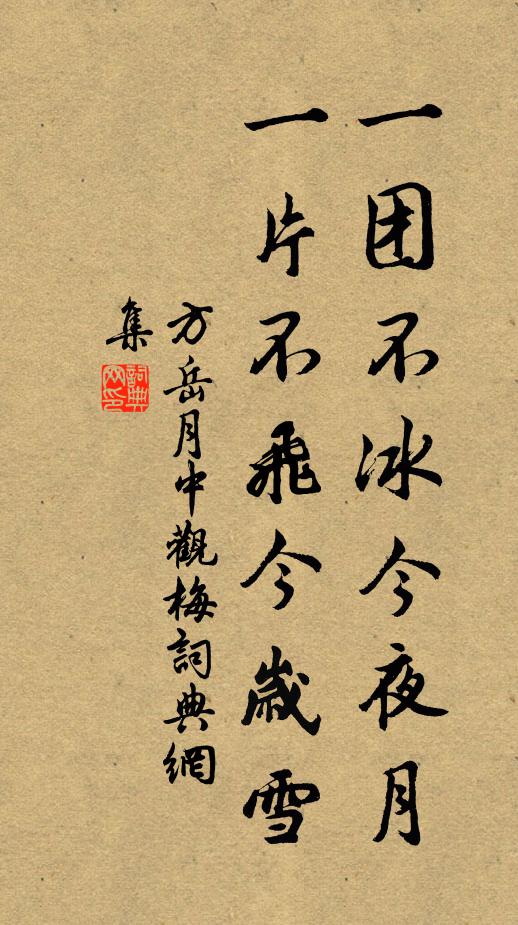 一团不冰今夜月
一片不飛今歲雪
方岳月中觀梅詞典網
集
詞典網印